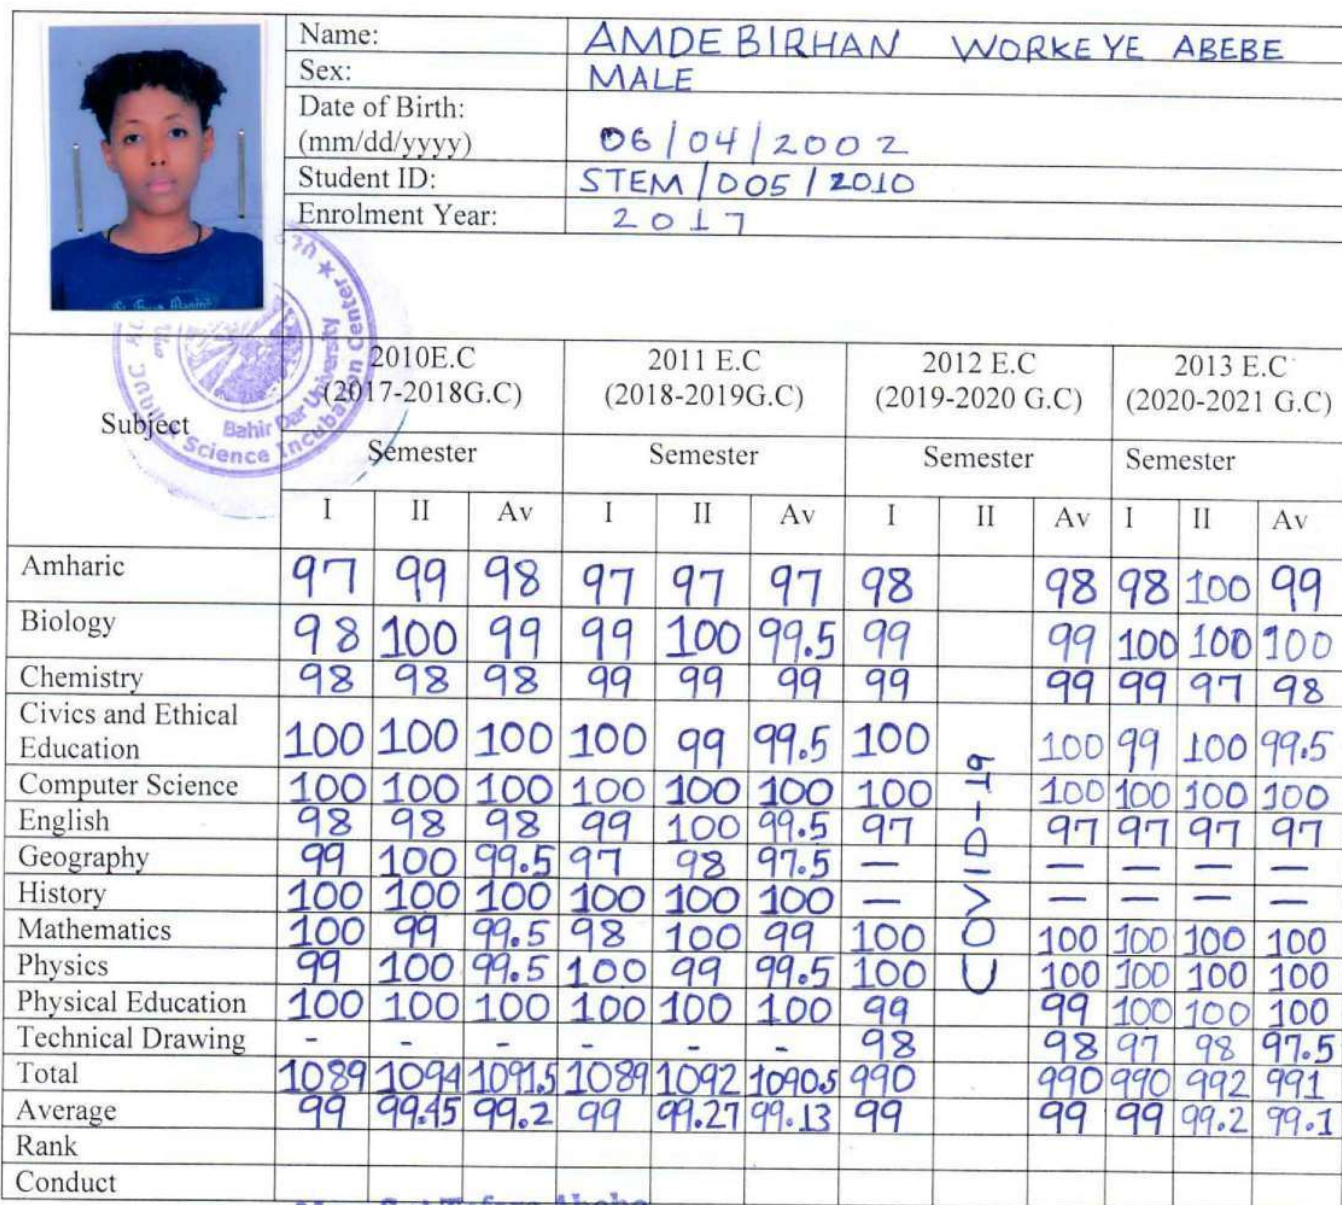 Name: AMDEBIRHAN WORKEYE ABEBE
Sex: MALE
Date of Birth:
(mm/dd/yyyy) 06/04/2002
Student ID: STEM/005/2010
Enrolment Year: 2017
Bahir Dar University
Science Incubation Center
Subject 2010E.C 2011 E.C 2012 E.C 2013 E.C
(2017-2018G.C) (2018-2019G.C) (2019-2020 G.C) (2020-2021 G.C)
Semester Semester Semester Semester
I II Av I II Av I II Av I II Av
Amharic 97 99 98 97 97 97 98 98 98 100 99
Biology 98 100 99 99 100 99.5 99 99 100 100 100
Chemistry 98 98 98 99 99 99 99 99 99 97 98
Civics and Ethical
Education 100 100 100 100 99 99.5 100 100 99 100 99.5
Computer Science 100 100 100 100 100 100 100 100 100 100 100
English 98 98 98 99 100 99.5 97 97 97 97 97
Geography 99 100 99.5 97 98 97.5 — — — — —
History 100 100 100 100 100 100 — — — — —
Mathematics 100 99 99.5 98 100 99 100 100 100 100 100
Physics 99 100 99.5 100 99 99.5 100 100 100 100 100
Physical Education 100 100 100 100 100 100 99 99 100 100 100
Technical Drawing - - - - - - 98 98 97 98 97.5
Total 1089 1094 1091.5 1089 1092 1090.5 990 990 990 992 991
Average 99 99.45 99.2 99 99.27 99.13 99 99 99 99.2 99.1
Rank
Conduct
COVID-19